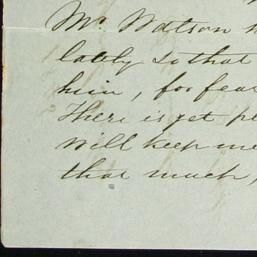 Mr. Watson
lately so that
him, for fear
There is yet
will keep me
that much,